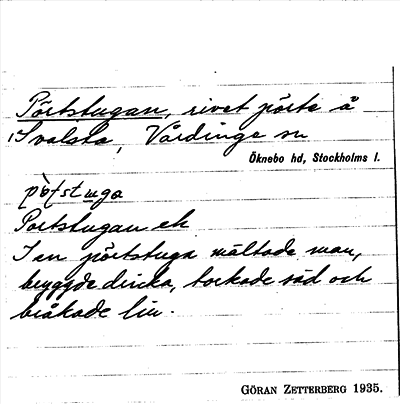 Pörtstugan, rivet pörte å
1 Svalsta, Vårdinge sn
Öknebo hd, Stockholms l.
Portstugan ek
I en pörtstuga mältade man,
bryggde dricka, torkade säd och
bråkade lin.
GÖRAN ZETTERBERG 1935.